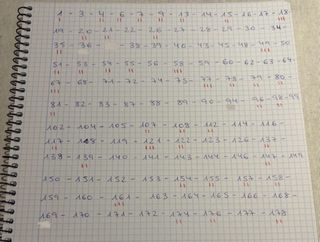 1 - 3 - 4 - 6 - 7 - 9 - 13 - 14 - 15 - 16 - 17 - 18
19 - 20 - 21 - 22 - 26 - 27 - 28 - 29 - 30 - 34 -
35 - 36 - - 38 - 39 - 40 - 43 - 45 - 48 - 49 - 50
51 - 53 - 54 - 55 - 56 - 58 - 59 - 60 - 62 - 63 - 64
67 - 68 - 71 - 72 - 74 - 75 - 77 - 78 - 79 - 80 -
81 - 82 - 83 - 87 - 88 - 89 - 90 - 94 - 96 - 98 - 99
102 - 104 - 105 - 107 - 108 - 112 - 114 - 116 -
117 - 118 - 119 - 121 - 122 - 123 - 126 - 137 -
138 - 139 - 140 - 141 - 143 - 144 - 146 - 147 - 149
150 - 151 - 152 - 153 - 154 - 155 - 157 - 158 -
159 - 160 - 161 - 163 - 164 - 165 - 166 - 168 -
169 - 170 - 171 - 172 - 174 - 176 - 177 - 178